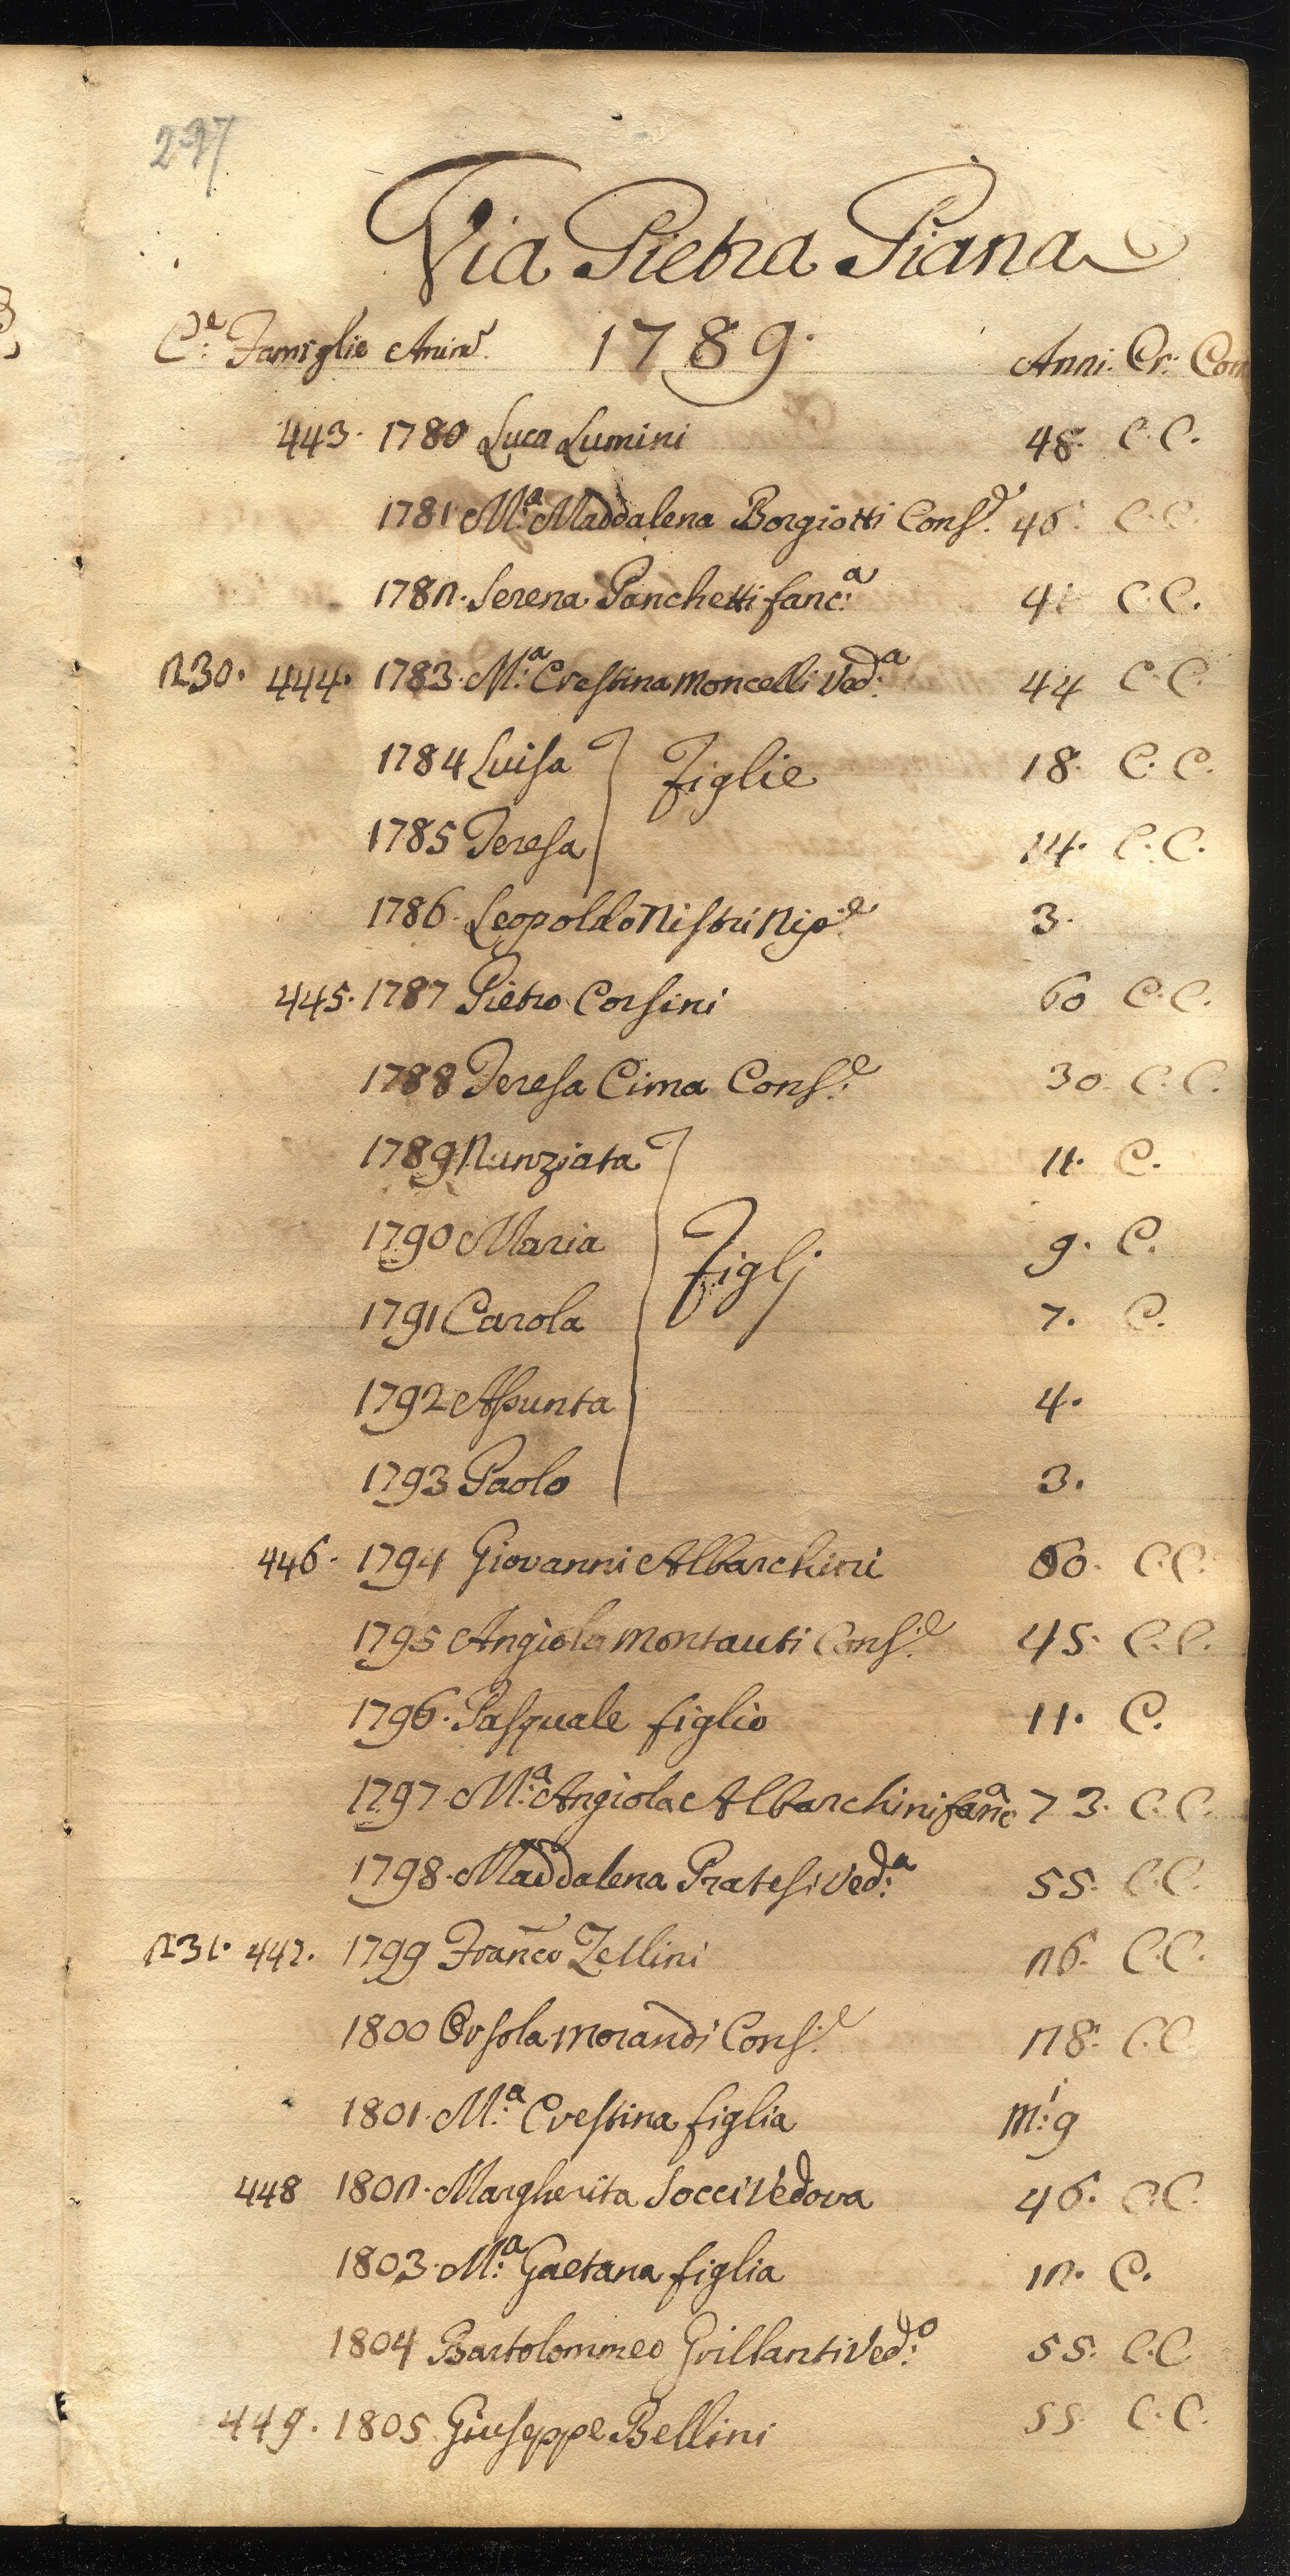 237
Via Pietra Piana
C.e Famiglie Anime. 1789. Anni. Cr. Com
443. 1780 Luca Lumini 48. C. C.
1781 M.a Maddalena Borgiotti Cons.e 46. C. C.
1782. Serena Panchetti fanc.a 41 C. C.
230. 444. 1783. M.a Crestina Moncelli Ved.a 44 C. C.
1784 Luisa Figlie 18. C. C.
1785 Teresa 14. C. C.
1786. Leopoldo Nistri Nip.e 3.
445. 1787 Pietro Corsini 60 C. C.
1788 Teresa Cima Cons.e 30. C. C.
1789 Nunziata 11. C.
1790 Maria Figlj 9. C.
1791 Carola 7. C.
1792 Assunta 4.
1793 Paolo 3.
446. 1794 Giovanni Albarchini 60. C. C.
1795 Angiola Montauti Cons.e 45. C. C.
1796. Pasquale figlio 11. C.
1797. M.a Angiola Albarchini fanc.a 73. C. C.
1798. Maddalena Pratesi Ved.a 55. C. C.
231. 447. 1799 Franco Zellini 26. C. C.
1800 Orsola Morandi Cons.e 28. C. C.
1801. M.a Crestina figlia M.i 9
448 1802. Margherita Socci Vedova 46. C. C.
1803. M.a Gaetana figlia 12. C.
1804 Bartolommeo Grillanti Ved.o 55. C. C.
449. 1805. Giuseppe Bellini 55. C. C.